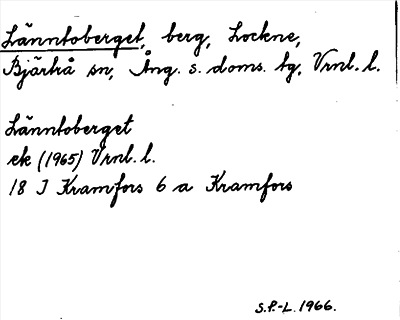 Länntoberget, berg, Lockne,
Bjärtrå sn, Ång. s. doms. tg, Vrnl. l.
Länntoberget
ek (1965) Vrnl. l.
18 J Kramfors 6 a Kramfors
S.P.-L. 1966.